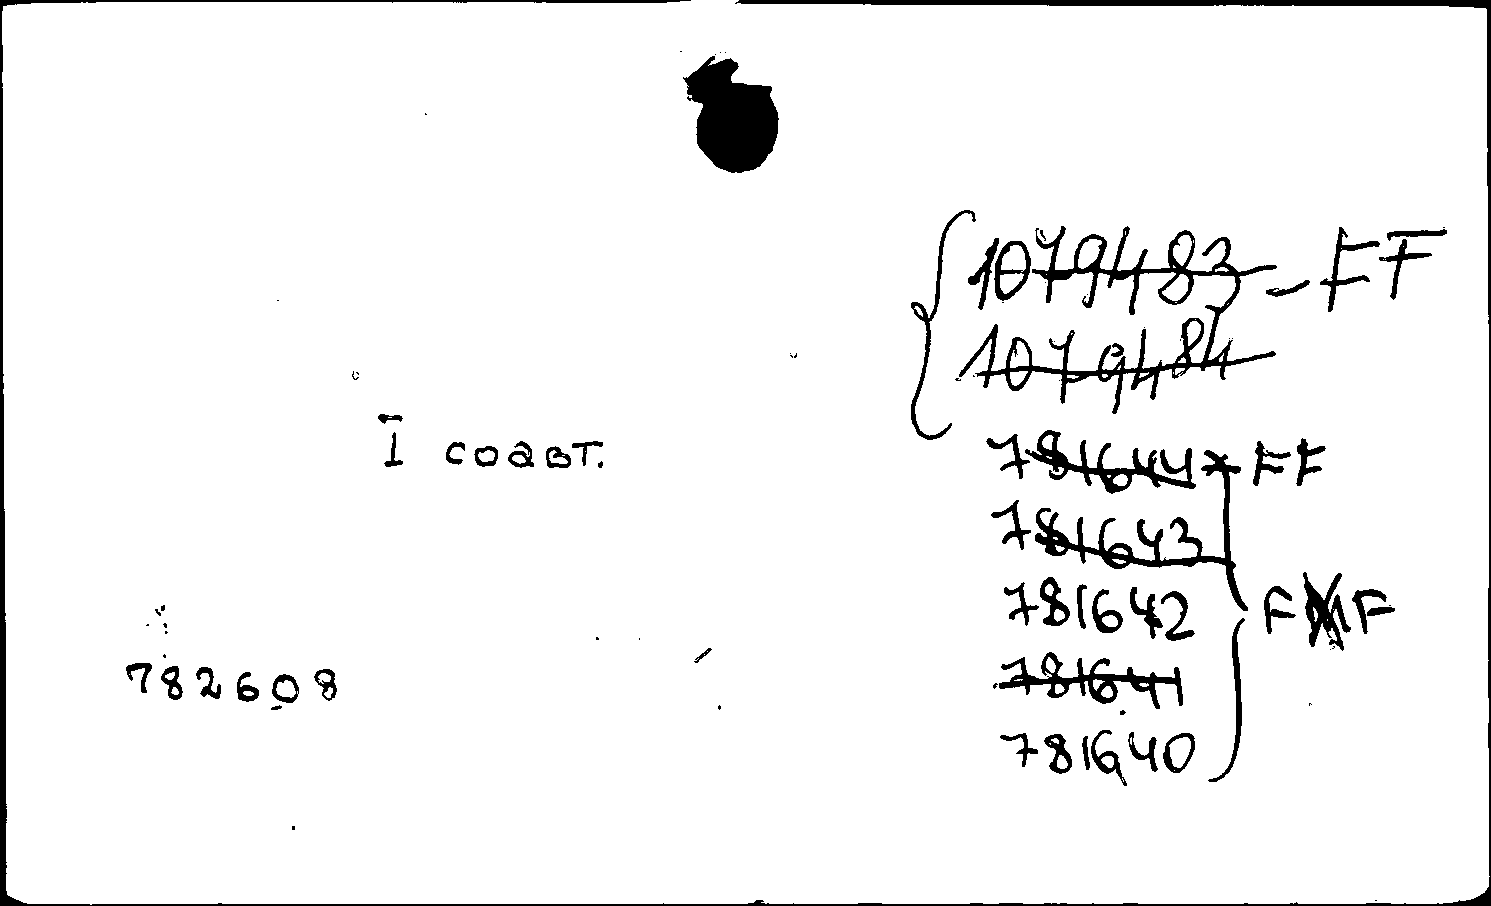 1079483 - FF
1079484
I COQBT.
781644 FF
781643
781642 F F
782608
781641
781640